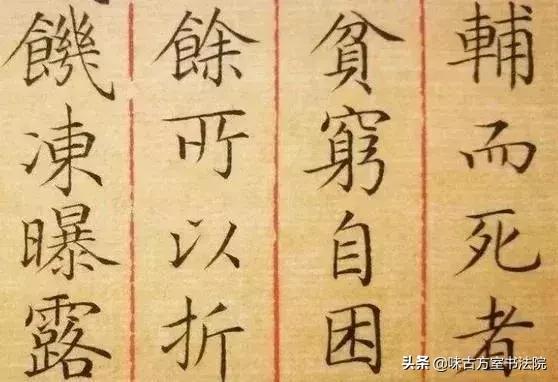 輔而死者
貧窮自困
餘所以折
饑凍曝露
头条 @味古方室书法院